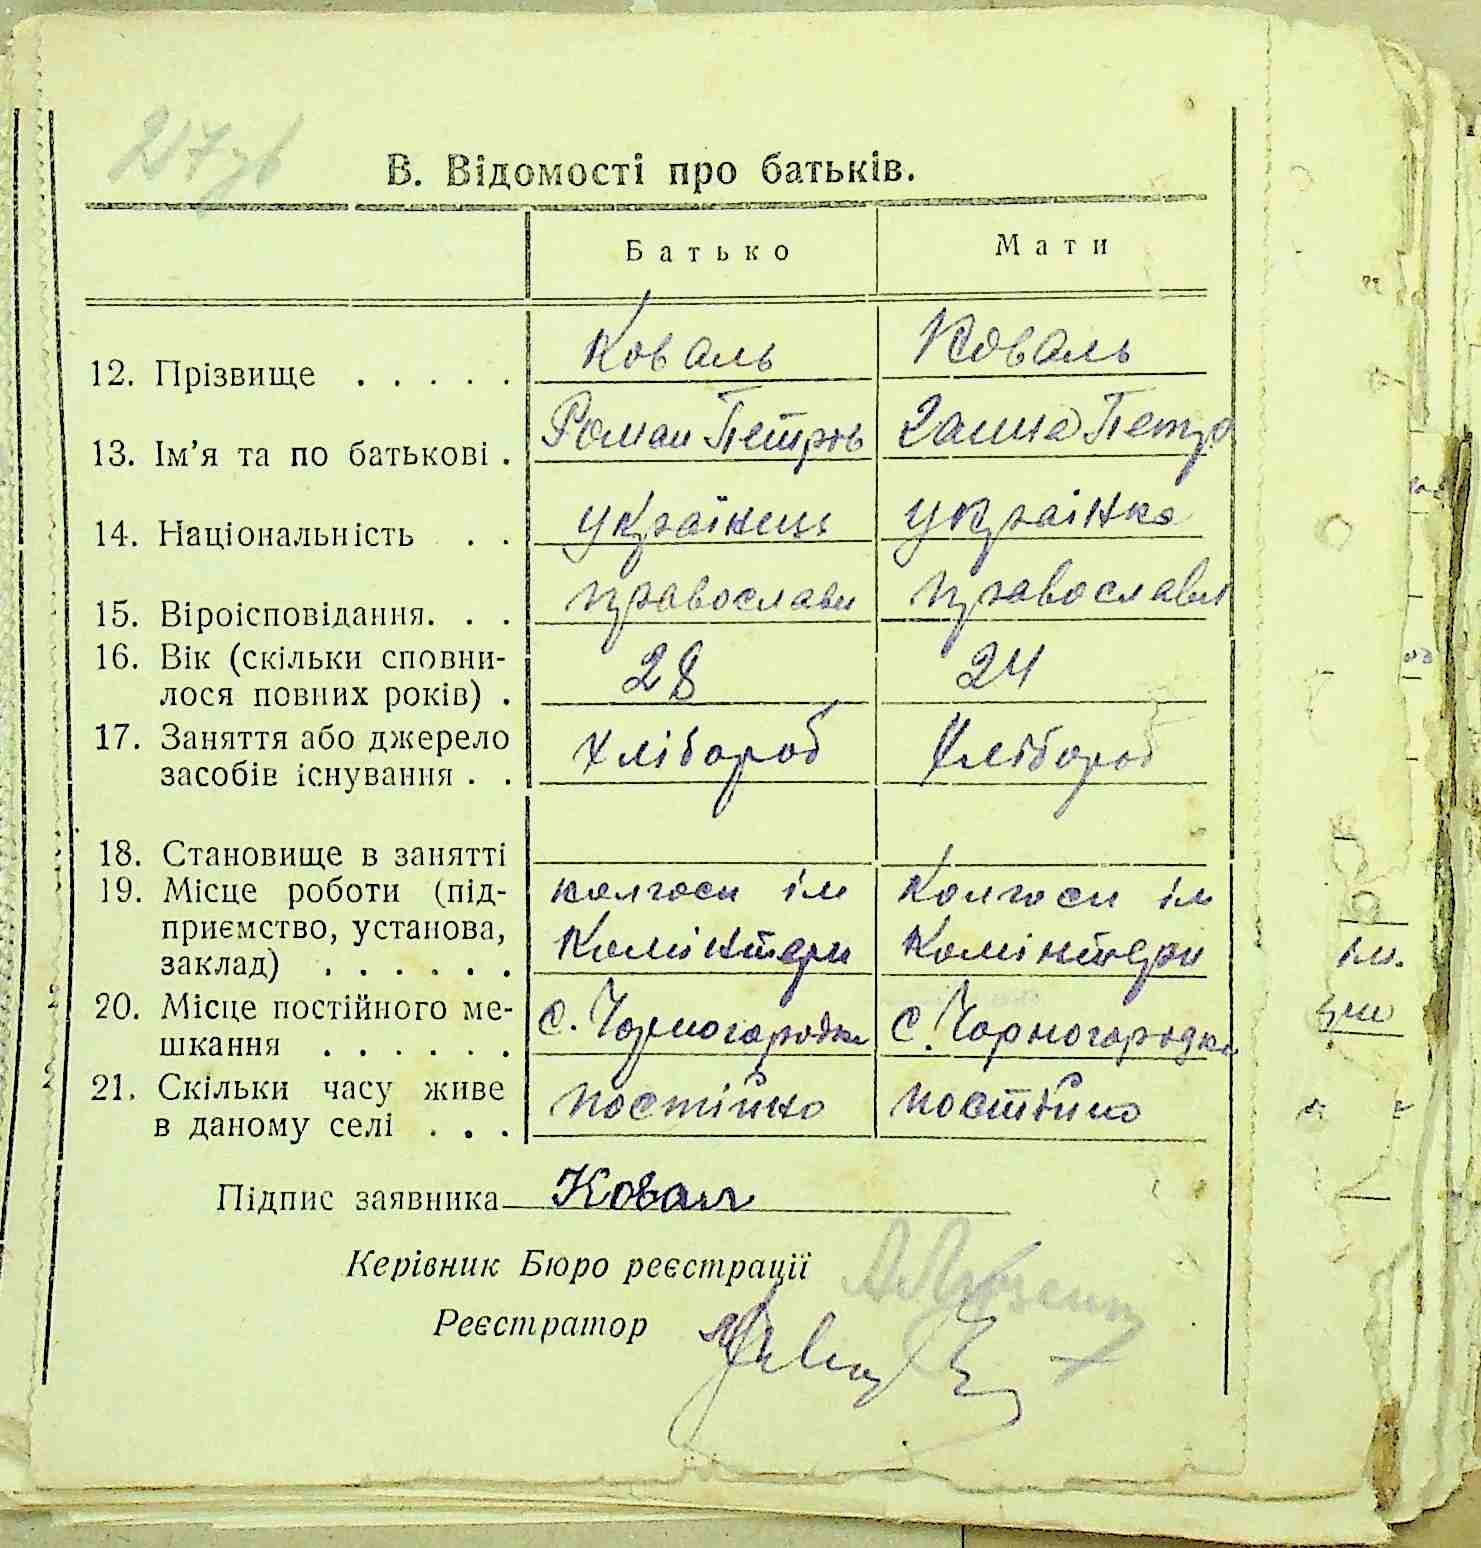 217зв
В. Відомості про батьків.
Батько Мати
12. Прізвище . . . . . Коваль Коваль
13. Ім'я та по батькові . Роман Петров Ганна Петр
14. Національність . . українець українка
15. Віроісповідання. . . православн православн
16. Вік (скільки сповни-
лося повних років) . 28 24
17. Заняття або джерело
засобів існування . . Хлібороб Хлібороб
18. Становище в занятті
19. Місце роботи (під- колгосп ім Колгосп ім
приємство, установа,
заклад) . . . . . . Комінтерн Комінтерн
20. Місце постійного ме-
шкання . . . . . . с. Чорногородка с. Чорногородка
21. Скільки часу живе
в даному селі . . . постійно постійно
Підпис заявника Коваль
Керівник Бюро реєстрації
Реєстратор
ім.